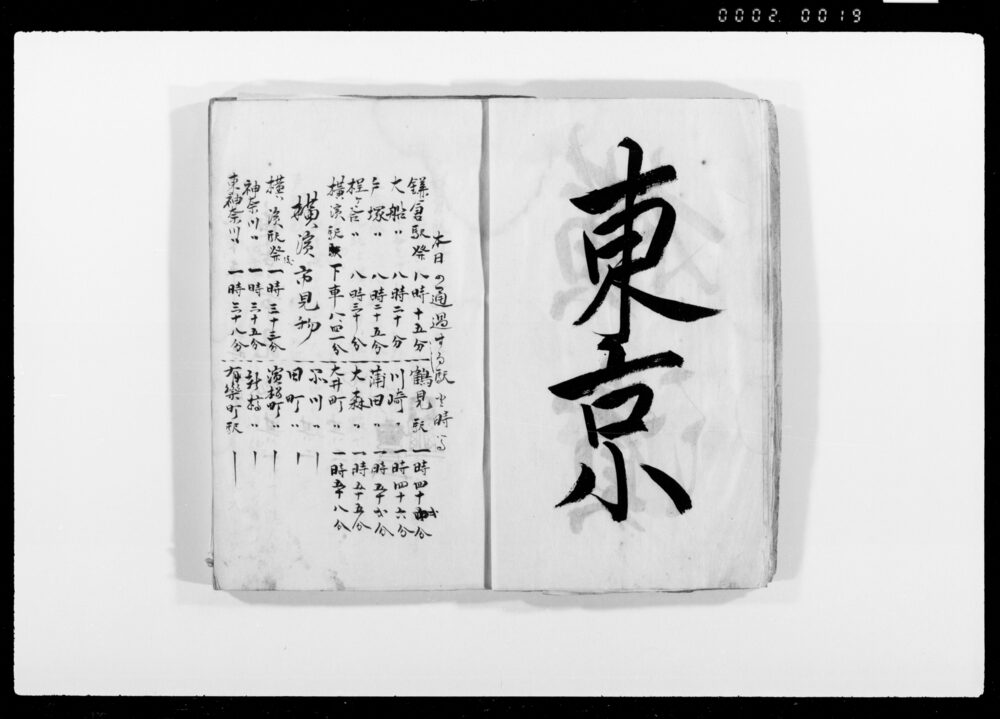 0002. 0019
東京
本日の通過する駅と時間
鎌倉駅発 八時十五分
大船〃 八時二十分
戸塚〃 八時二十五分
程ヶ谷〃 八時三十分
横濱駅 下車八、四一分
横濱市見物
横濱駅発 一時三十三分
神奈川〃 一時三十五分
東神奈川〃 一時三十八分
鶴見駅 一時四十分
川崎〃 一時四十六分
蒲田〃 一時五十分
大森〃 一時五十五分
大井町〃 一時五十八分
品川〃
田町〃
濱松町〃
新橋〃
有楽町駅